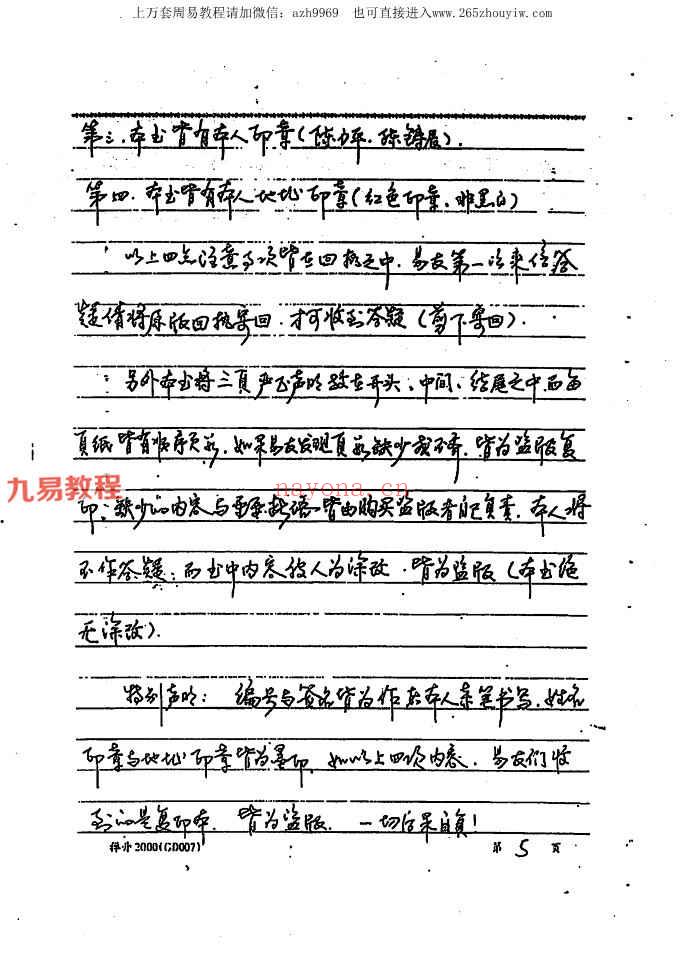 上万套周易教程请加微信：azh9969 也可直接进入www.265zhouyiw.com
第三、本书皆有本人印章(陈力平、陈锦晨).
第四、本书皆有本人地址印章(红色印章、非黑白)
以上四点注意事项皆在回执之中、易友第一次来信答
疑请将原版回执寄回、才可收到答疑(剪下寄回).
另外本书将三頁严正声明放在开头、中间、结尾之中而每
頁纸皆有顺序頁码、如果易友发现頁码缺少或不齐、皆为盗版复
九易教程
nayona.cn
印；缺少的内容与重要批语皆由购买盗版者自己负责、本人将
不作答疑；而书中内容被人为涂改、皆为盗版(本书绝
无涂改).
特别声明：编号与签名皆为作者本人亲笔书写、姓名
印章与地址印章皆为墨印、如以上四项内容、易友们收
到的是复印本、皆为盗版、一切后果自负!
稗办2000(GD007) 第 5 页